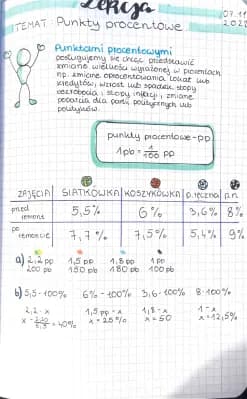 Lekcja
TEMAT: Punkty procentowe
07.11
202
Punktami procentowymi
posługujemy się chcąc przedstawić
zmianę wielkości wyrażonej w procentach
np. zmianę oprocentowania lokat lub
kredytów, wzrost lub spadek stopy
bezrobocia i stopy inflacji, zmianę
poparcia dla partii politycznych lub
polityków.
punkty procentowe - pp
1pb = 1/100 pp
ZAJĘCIA SIATKÓWKA KOSZYKÓWKA p.ręczna p.n.
przed remontem 5,5% 6% 3,6% 8%
po remoncie 7,7% 7,5% 5,4% 9%
a) 2,2 pp 1,5 pp 1,8 pp 1 pp
220 pb 150 pb 180 pb 100 pb
b) 5,5 - 100% 6% - 100% 3,6 - 100% 8 - 100%
2,2 - x 1,5 pp - x 1,8 - x 1 - x
= 40% x = 25% x = 50 x = 12,5%